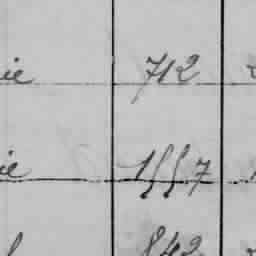 ie 712
ie 1557
842